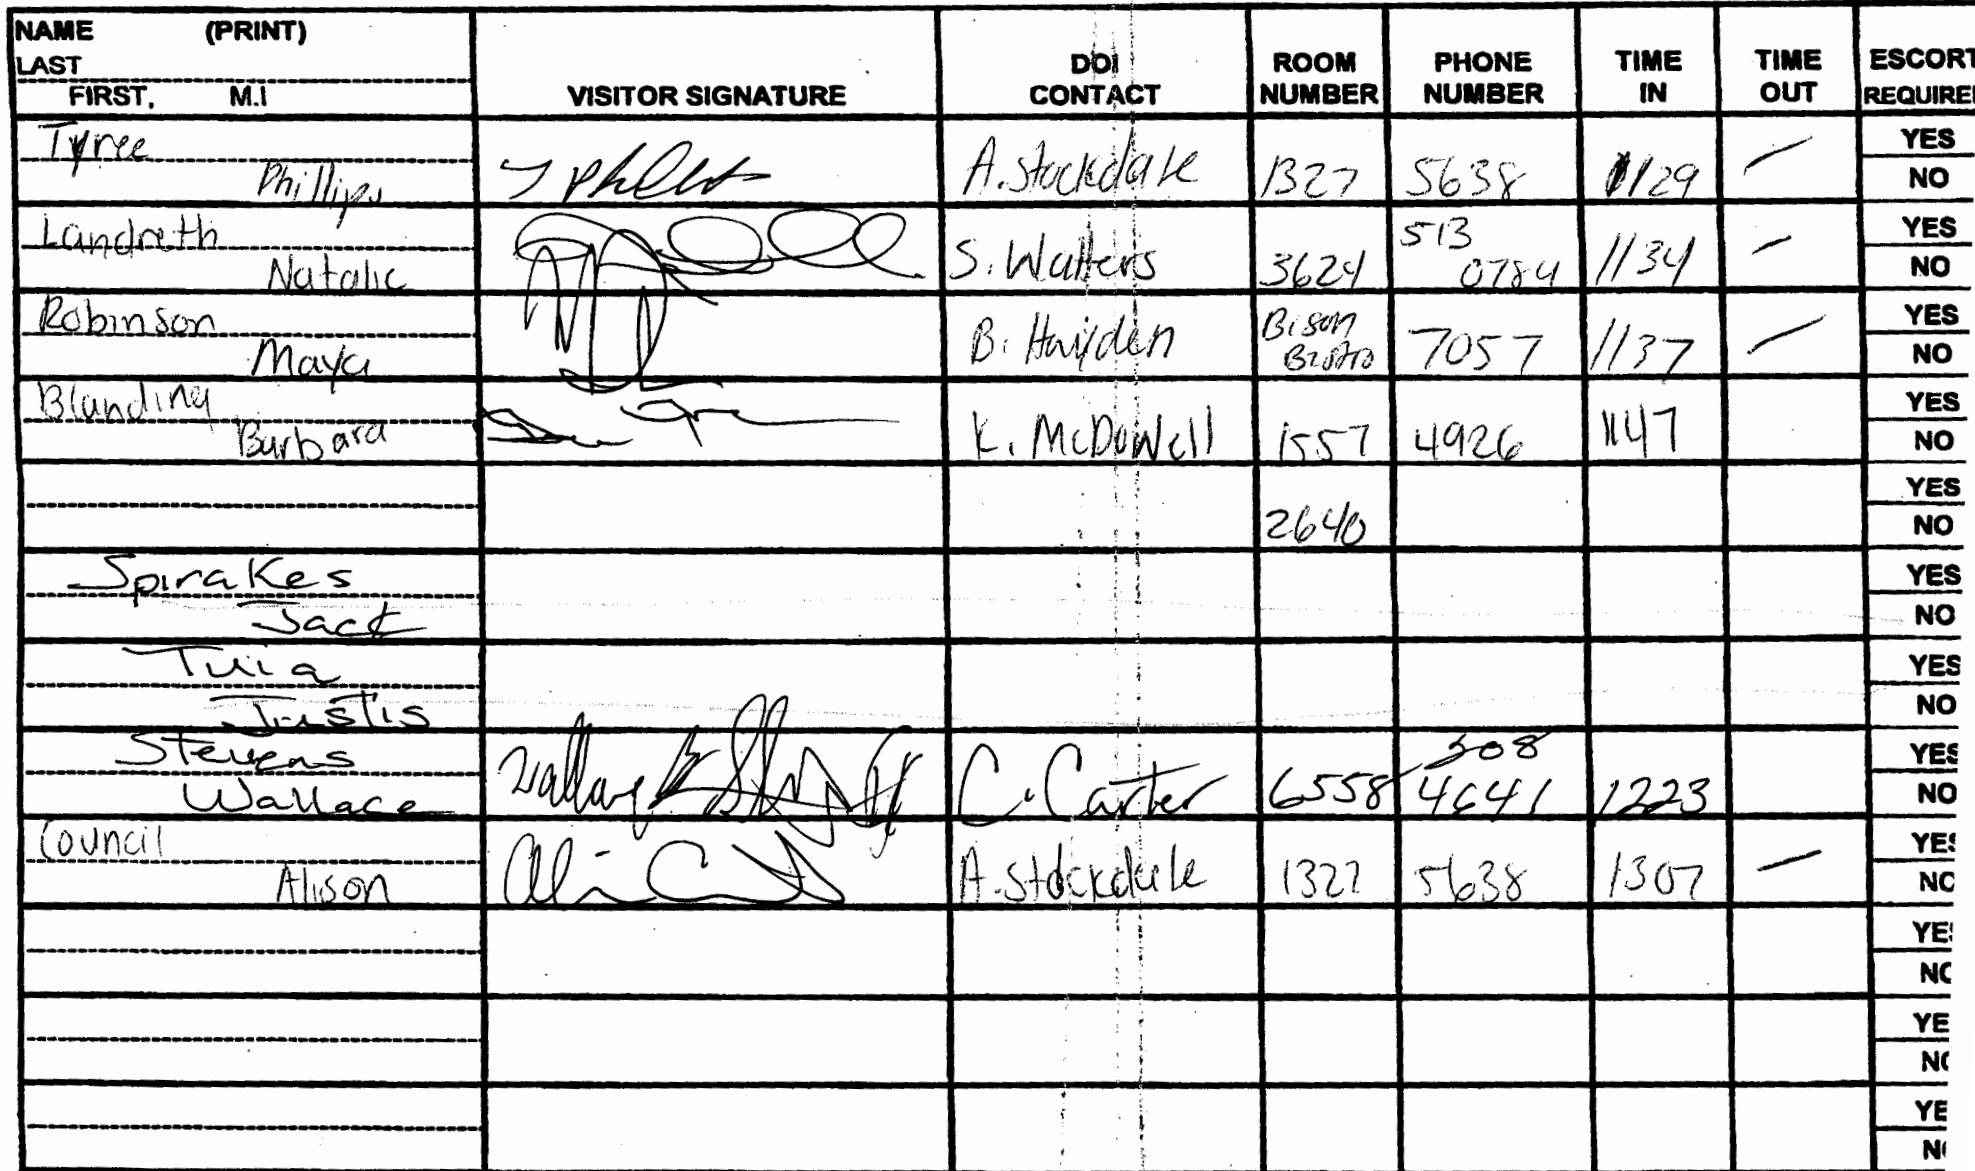 NAME (PRINT)
LAST
FIRST, M.I
VISITOR SIGNATURE
DOI CONTACT
ROOM NUMBER
PHONE NUMBER
TIME IN
TIME OUT
ESCORT REQUIRE
Tyree
Phillips A. Stockdale 1327 5638 1129 —
YES
NO
Landreth
Natalie S. Walters 3624 513 0784 1134 —
YES
NO
Robinson
Maya B. Hayden Bison Bistro 7057 1137 —
YES
NO
Blanding
Barbara K. McDowell 1557 4926 1147
YES
NO
2640
YES
NO
Spirakes
Jack
YES
NO
Tuia
Justis
YES
NO
Stevens
Wallace C. Carter 6558 308 4641 1223
YES
NO
Council
Alison A. Stockdale 1327 5638 1307 —
YES
NO
YE
NO
YE
NO
YE
NO